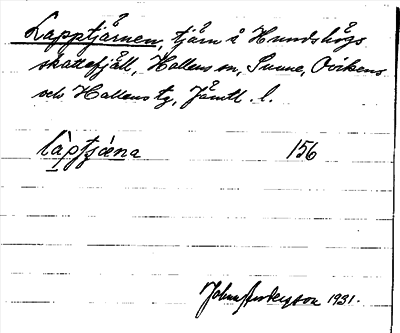 Lapptjärnen, tjärn å Hundshögs
skattefjäll, Hallens sn, Sunne, Ovikens
och Hallens tg, Jämtl. l.
làptjæ̀na 156
John Anderzson 1931.